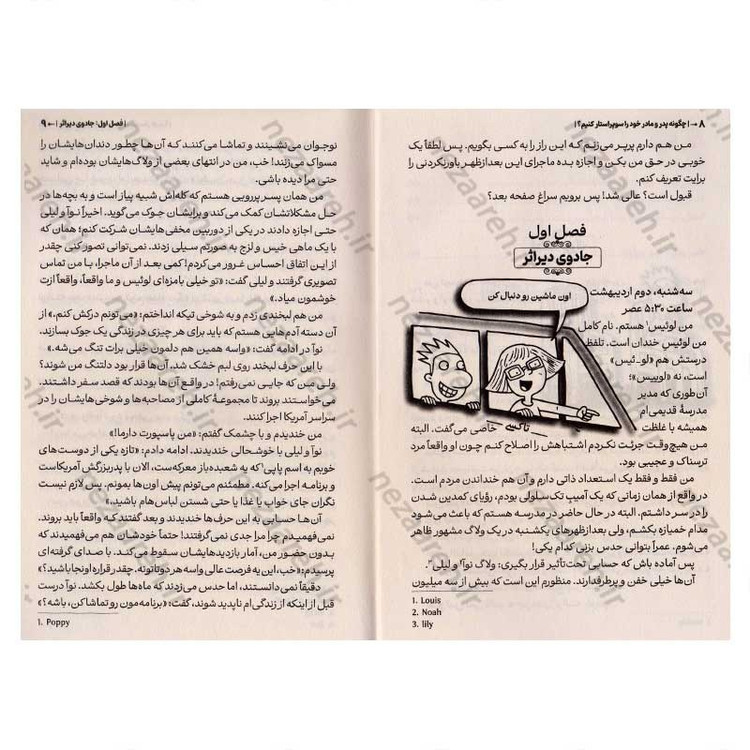 ۸ ←| چگونه پدر و مادر خود را سوپراستار کنیم؟ |
من هم دارم پرپر می‌زنم که این راز را به کسی بگویم. پس لطفاً یک
خوبی در حق من بکن و اجازه بده ماجرای این بعدازظهر باورنکردنی را
برایت تعریف کنم.
قبول است؟ عالی شد! پس برویم سراغ صفحه بعد؟
فصل اول
جادوی دیرائر
سه‌شنبه، دوم اردیبهشت
ساعت ۵:۳۰ عصر
اون ماشین رو دنبال کن
من لوئیس۱ هستم. نام کامل
من لوئیسِ خندان است. تلفظ
درستش هم «لو-ئیس»
است، نه «لوییس»؛
آن‌طوری که مدیر
مدرسهٔ قدیمی‌ام
همیشه با غلظت خاصی می‌گفت. البته
تاکسی
من هیچ‌وقت جرئت نکردم اشتباهش را اصلاح کنم چون او واقعاً مرد
ترسناک و عجیبی بود.
من فقط و فقط یک استعداد ذاتی دارم و آن هم خنداندن مردم است.
در واقع از همان زمانی که یک آمیبِ تک‌سلولی بودم، رؤیای کمدین شدن
را در سر داشتم. البته در حال حاضر در مدرسه هستم که باعث می‌شود
مدام خمیازه بکشم، ولی بعدازظهرهای یکشنبه در یک ولاگ مشهور ظاهر
می‌شوم. عمراً بتوانی حدس بزنی کدام یکی!
پس آماده باش که حسابی تحت‌تأثیر قرار بگیری: ولاگ نوآ۲ و لیلی۳.
آن‌ها خیلی خفن و پرطرفدارند. منظورم این است که بیش از سه میلیون
1. Louis
2. Noah
3. lily
| فصل اول: جادوی دیرائر |→ ۹
نوجوان می‌نشینند و تماشا می‌کنند که آن‌ها چطور دندان‌هایشان را
مسواک می‌زنند! خب، من در انتهای بعضی از ولاگ‌هایشان بوده‌ام و شاید
حتی مرا دیده باشی.
من همان پسر پررویی هستم که کله‌اش شبیه پیاز است و به بچه‌ها در
حل مشکلاتشان کمک می‌کند و برایشان جوک می‌گوید. اخیراً نوآ و لیلی
حتی اجازه دادند در یکی از دوربین مخفی‌هایشان شرکت کنم؛ همان که
با یک ماهی خیس و لزج به صورتم سیلی زدند. نمی‌توانی تصور کنی چقدر
از این اتفاق احساس غرور می‌کردم! کمی بعد از آن ماجرا، با من تماس
تصویری گرفتند و لیلی گفت: «تو خیلی بامزه‌ای لوئیس و ما واقعاً، واقعاً ازت
خوشمون میاد.»
من هم لبخندی زدم و به شوخی تیکه انداختم: «می‌تونم درکش کنم.» از
آن دسته آدم‌هایی هستم که باید برای هر چیزی در زندگی یک جوک بسازند.
نوآ در ادامه گفت: «واسه همین هم دلمون خیلی برات تنگ می‌شه.»
با این حرف لبخند روی لبم خشک شد. آن‌ها قرار بود دلتنگ من شوند؟
ولی من که جایی نمی‌رفتم! در واقع آن‌ها بودند که قصد سفر داشتند.
می‌خواستند بروند تا مجموعهٔ کاملی از مصاحبه‌ها و شوخی‌هایشان را در
سراسر آمریکا اجرا کنند.
من خندیدم و با چشمک گفتم: «من پاسپورت دارما!»
نوآ و لیلی با خوشحالی خندیدند. ادامه دادم: «تازه یکی از دوست‌های
خوبم به اسم پاپی۱ که یه شعبده‌باز معرکه‌ست، الان با پدربزرگش آمریکاست
و برنامه اجرا می‌کنه. مطمئنم می‌تونم پیش اون‌ها بمونم. پس لازم نیست
نگران جای خواب یا غذا یا حتی شستن لباس‌هام باشید.»
آن‌ها حسابی به این حرف‌ها خندیدند و بعد گفتند که واقعاً باید بروند.
نمی‌فهمیدم چرا مرا جدی نمی‌گرفتند! حتماً خودشان هم می‌فهمیدند که
بدون حضور من، آمار بازدیدهایشان سقوط می‌کند. با صدای گرفته‌ای
پرسیدم: «خب، این یه فرصت عالی واسه هر دوتاتونه. چقدر قراره اونجا باشید؟»
دقیقاً نمی‌دانستند، اما حدس می‌زدند که ماه‌ها طول بکشد. نوآ درست
قبل از اینکه از زندگی‌ام ناپدید شوند، گفت: «برنامه‌مون رو تماشا کن، باشه؟»
1. Poppy
nezaareh.ir